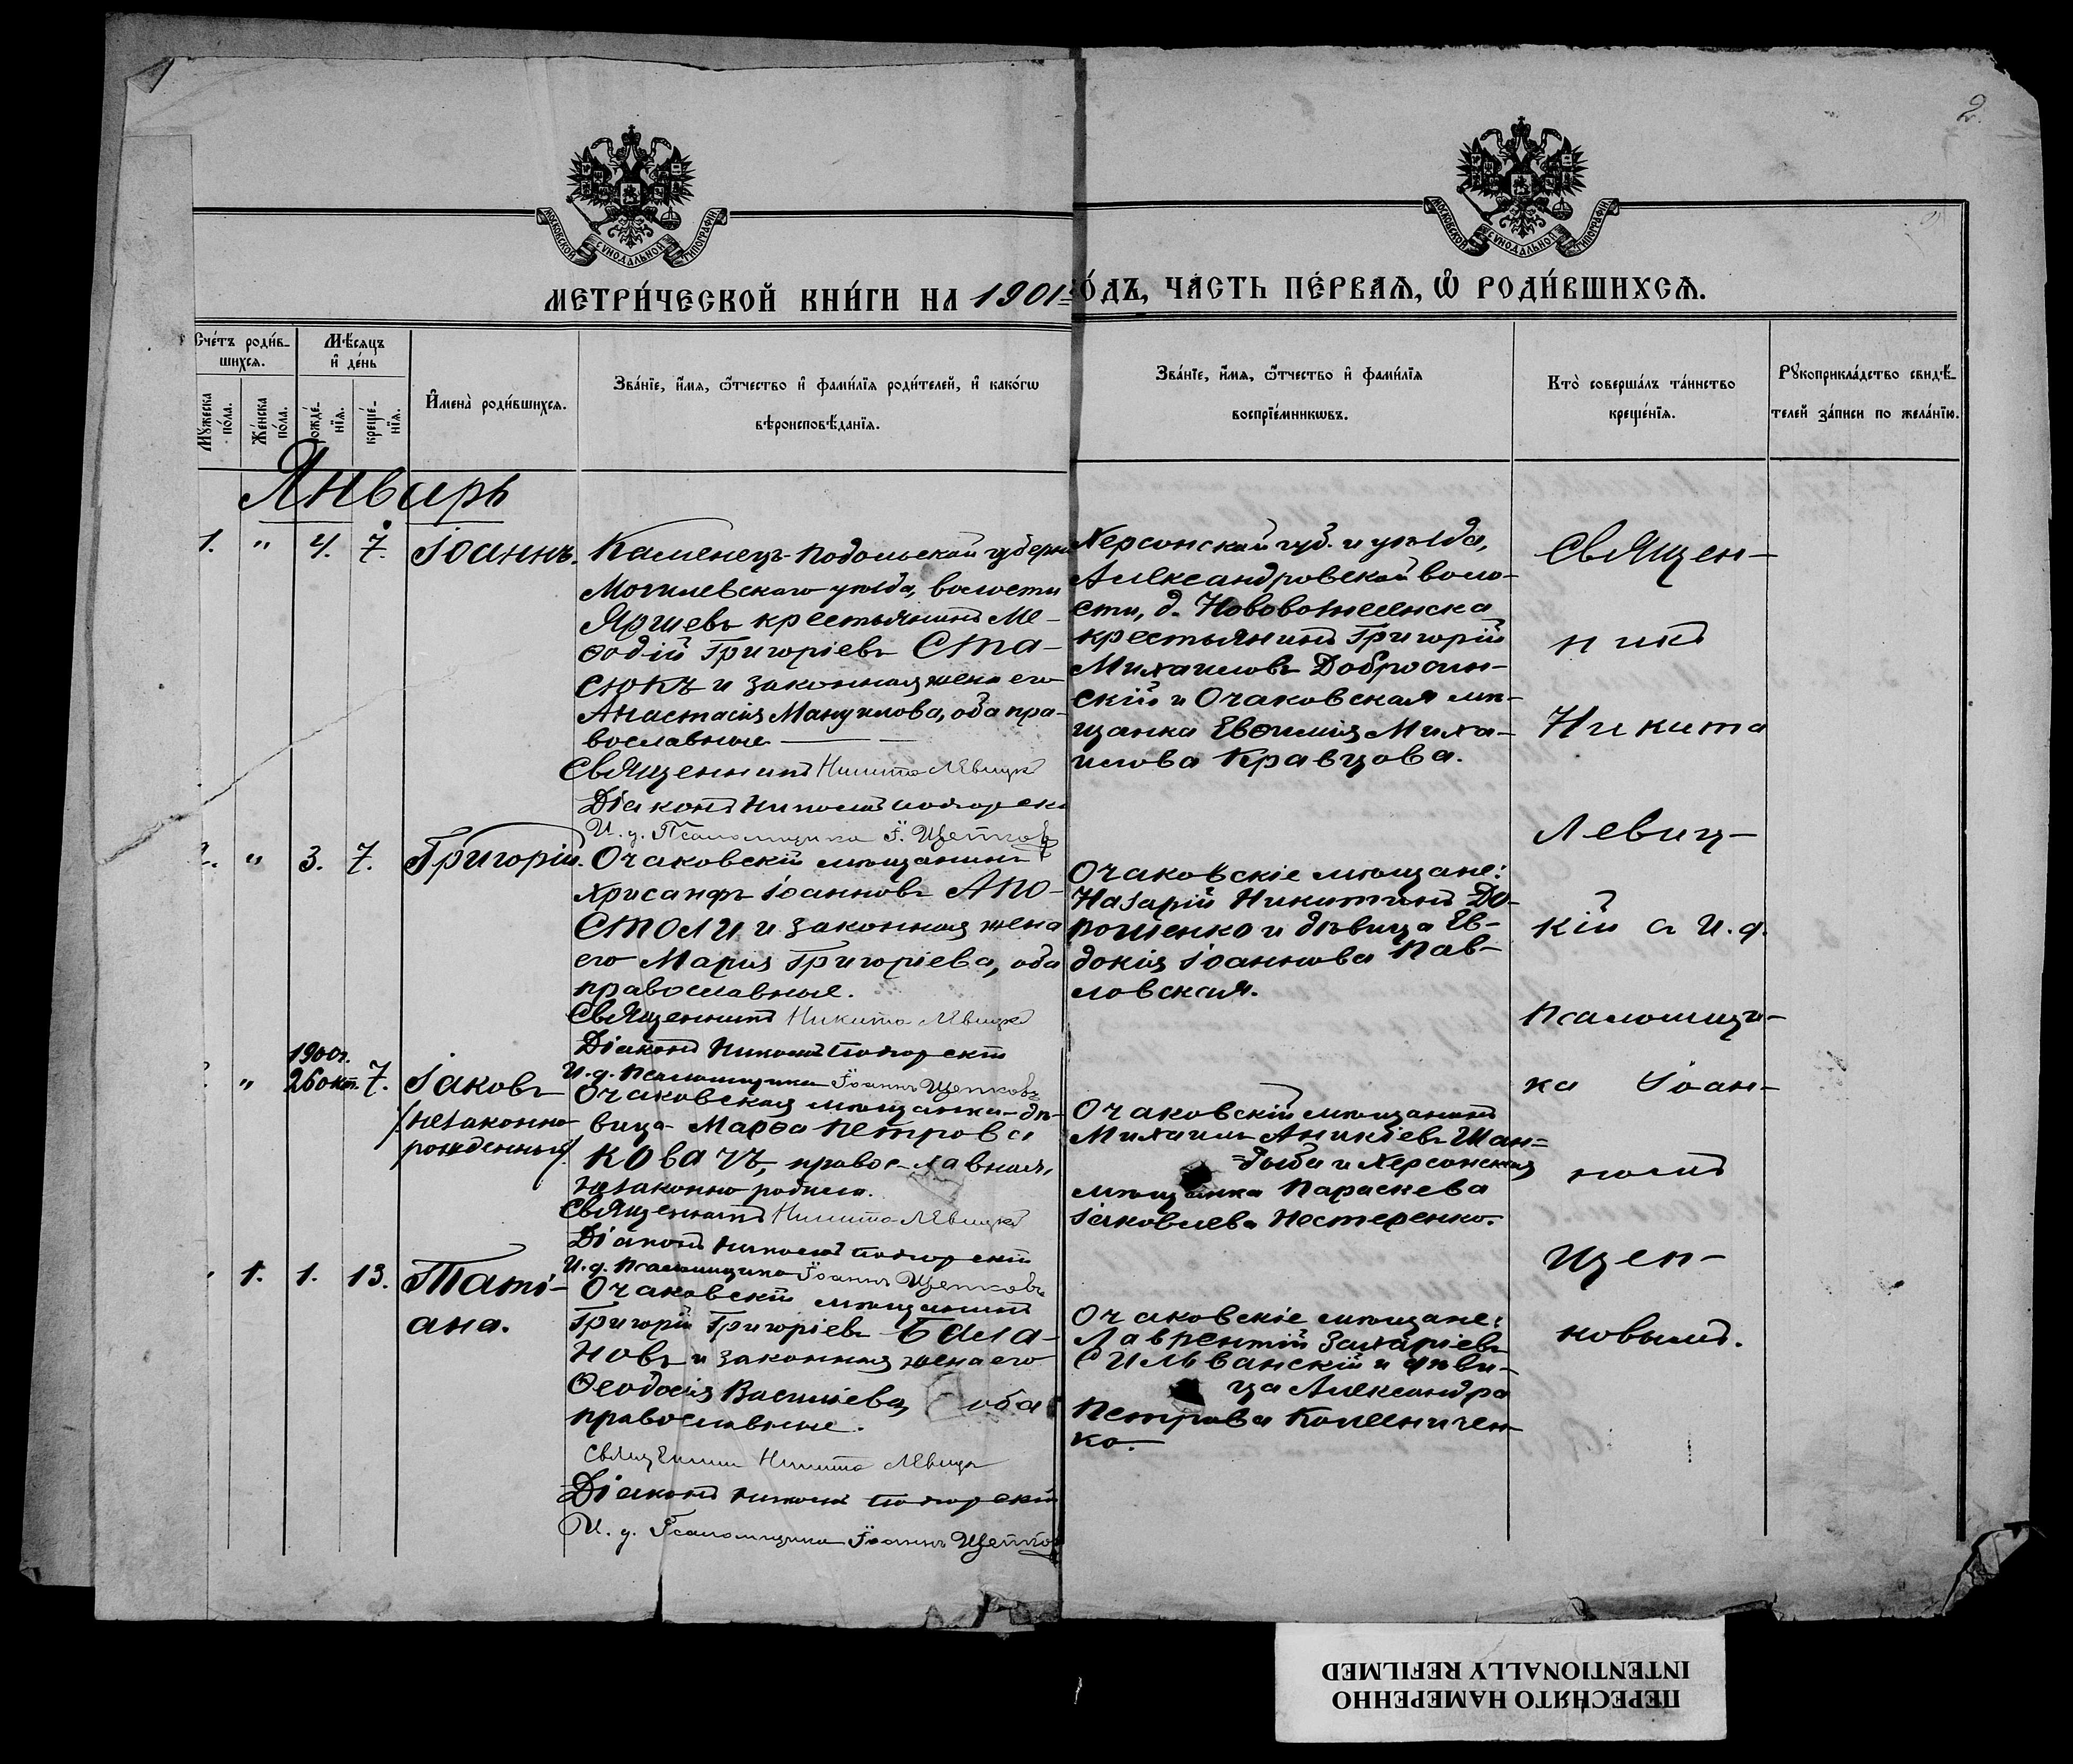 2.
МОСКОВСКОЙ СѴНОДАЛЬНОЙ ТИПОГРАФІИ
МОСКОВСКОЙ СѴНОДАЛЬНОЙ ТИПОГРАФІИ
МЕТРИ́ЧЕСКОЙ КНИ́ГИ НА 1901 ГО́ДЪ, ЧА́СТЬ ПЕ́РВАЯ, Ѡ РОДИ́ВШИХСЯ.
Сче́тъ роди́вшихся.
Мꙋ́жеска по́ла.
Же́нска по́ла.
Мѣ́сяцъ и҆ де́нь
рожде́нїя.
креще́нїя.
И҆мена̀ роди́вшихся.
Зва́нїе, и҆́мя, ѻ҆́тчество и҆ фами́лїя роди́телей, и҆ како́гѡ
вѣроисповѣ́данїя.
Зва́нїе, и҆́мя, ѻ҆́тчество и҆ фами́лїя
воспрїе́мникѡвъ.
Кто̀ соверша́лъ та́инство
креще́нїя.
Рꙋкоприкла́дство свидѣ́-
телей за́писи по жела́нїю.
Январь
1. " 4. 7. Іоаннъ.
Каменецъ-Подольской губерніи
Могилевскаго уѣзда, волости
Яришевъ крестьянинъ Ме-
ѳодій Григоріевъ Ста-
сюкъ и законная жена его
Анастасія Мануилова, оба пра-
вославные
Священникъ Никита Левицкій
Діаконъ Николай
И. д. Псаломщика І. Щепковъ
Херсонской губ. и уѣзда,
Александровской воло-
сти, д. Нововознесенска
крестьянинъ Григорій
Михаиловъ Добролин-
скій и Очаковская мѣ-
щанка Евѳимія Миха-
илова Кравцова.
2. " 3. 7. Григорій.
Очаковскій мѣщанинъ
Хрисанфъ Іоанновъ Апо-
столи и законная жена
его Марія Григоріева, оба
православные.
Священникъ Никита Левицкій
Діаконъ Николай
И. д. Псаломщика Іоаннъ Щепковъ
Очаковскіе мѣщане:
Назарій Никитинъ До-
рошенко и дѣвица Ев-
докія Іоаннова Пав-
ловская.
" 1900г. 26 окт. 7. Іаковъ
/незаконно-
рожденный/.
Очаковская мѣщанка-дѣ-
вица Марѳа Петрова
Ковачъ, православная,
незаконно родила.
Священникъ Никита Левицкій
Діаконъ Николай
И. д. Псаломщика Іоаннъ Щепковъ
Очаковскій мѣщанинъ
Михаилъ Аникіевъ Шан=
=дыба и Херсонская
мѣщанка Параскева
Іаковлева Нестеренко.
1. 1. 13. Таті-
ана.
Очаковскій мѣщанинъ
Григорій Григоріевъ Бала-
новъ и законная жена его
Ѳеодосія Василіева, оба
православные.
Священникъ Никита Левицкій
Діаконъ Николай
И. д. Псаломщика Іоаннъ Щепковъ
Очаковскіе мѣщане:
Лаврентій Захаріевъ
Сильванскій и дѣви-
ца Александра
Петрова Колениченко
ко.
Священ-
никъ
Никита
Левиц-
кій с И. д.
Псаломщи-
ка Іоан-
номъ
Щеп-
ковымъ.
ПЕРЕСНЯТО НАМЕРЕННО
INTENTIONALLY REFILMED